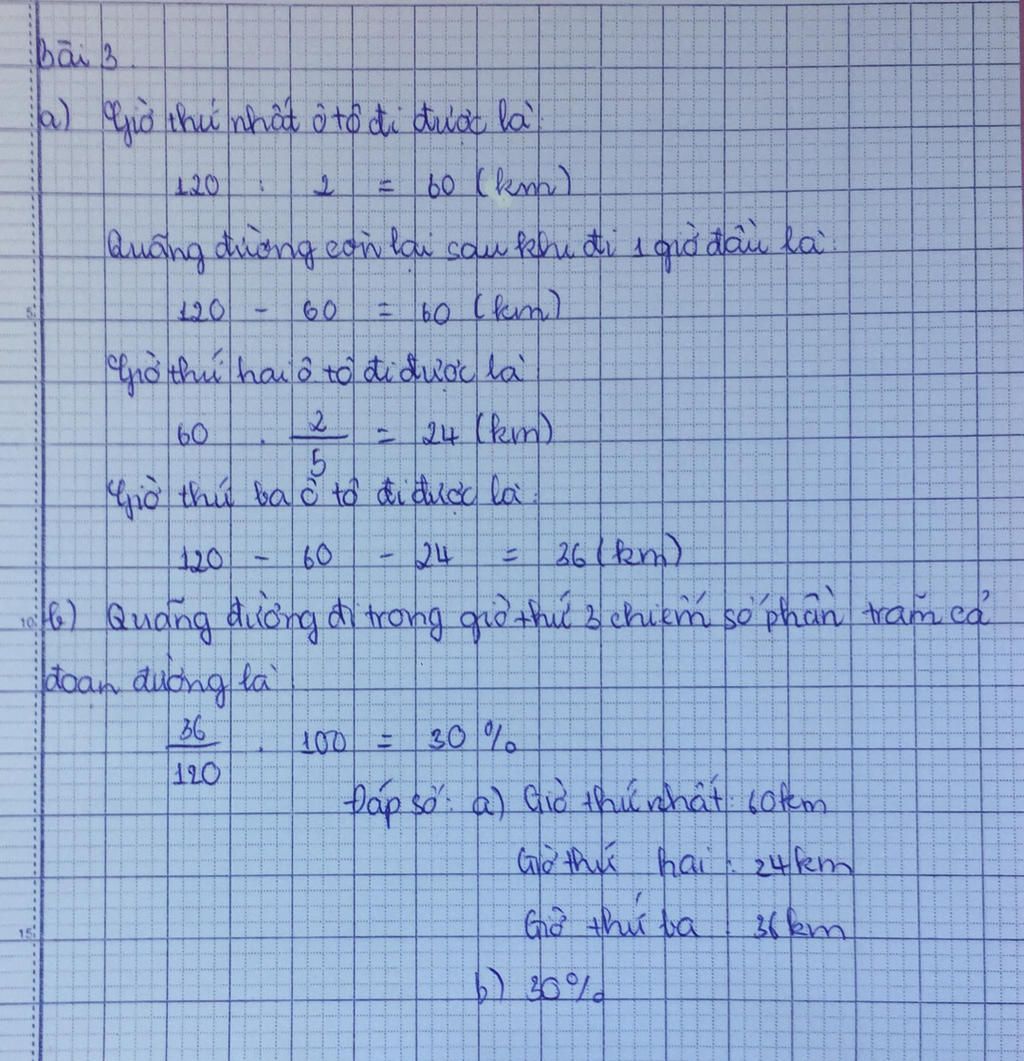 Bài 3.
a) Giờ thứ nhất ô tô đi được là:
120 : 2 = 60 (km)
Quãng đường còn lại sau khi đi 1 giờ đầu là:
120 - 60 = 60 (km)
Giờ thứ hai ô tô đi được là
60 . 2/5 = 24 (km)
Giờ thứ ba ô tô đi được là:
120 - 60 - 24 = 36 (km)
b) Quãng đường đi trong giờ thứ 3 chiếm số phần trăm cả
đoạn đường là:
36/120 . 100 = 30 %
Đáp số: a) Giờ thứ nhất: 60km
Giờ thứ hai : 24km
Giờ thứ ba : 36km
b) 30%